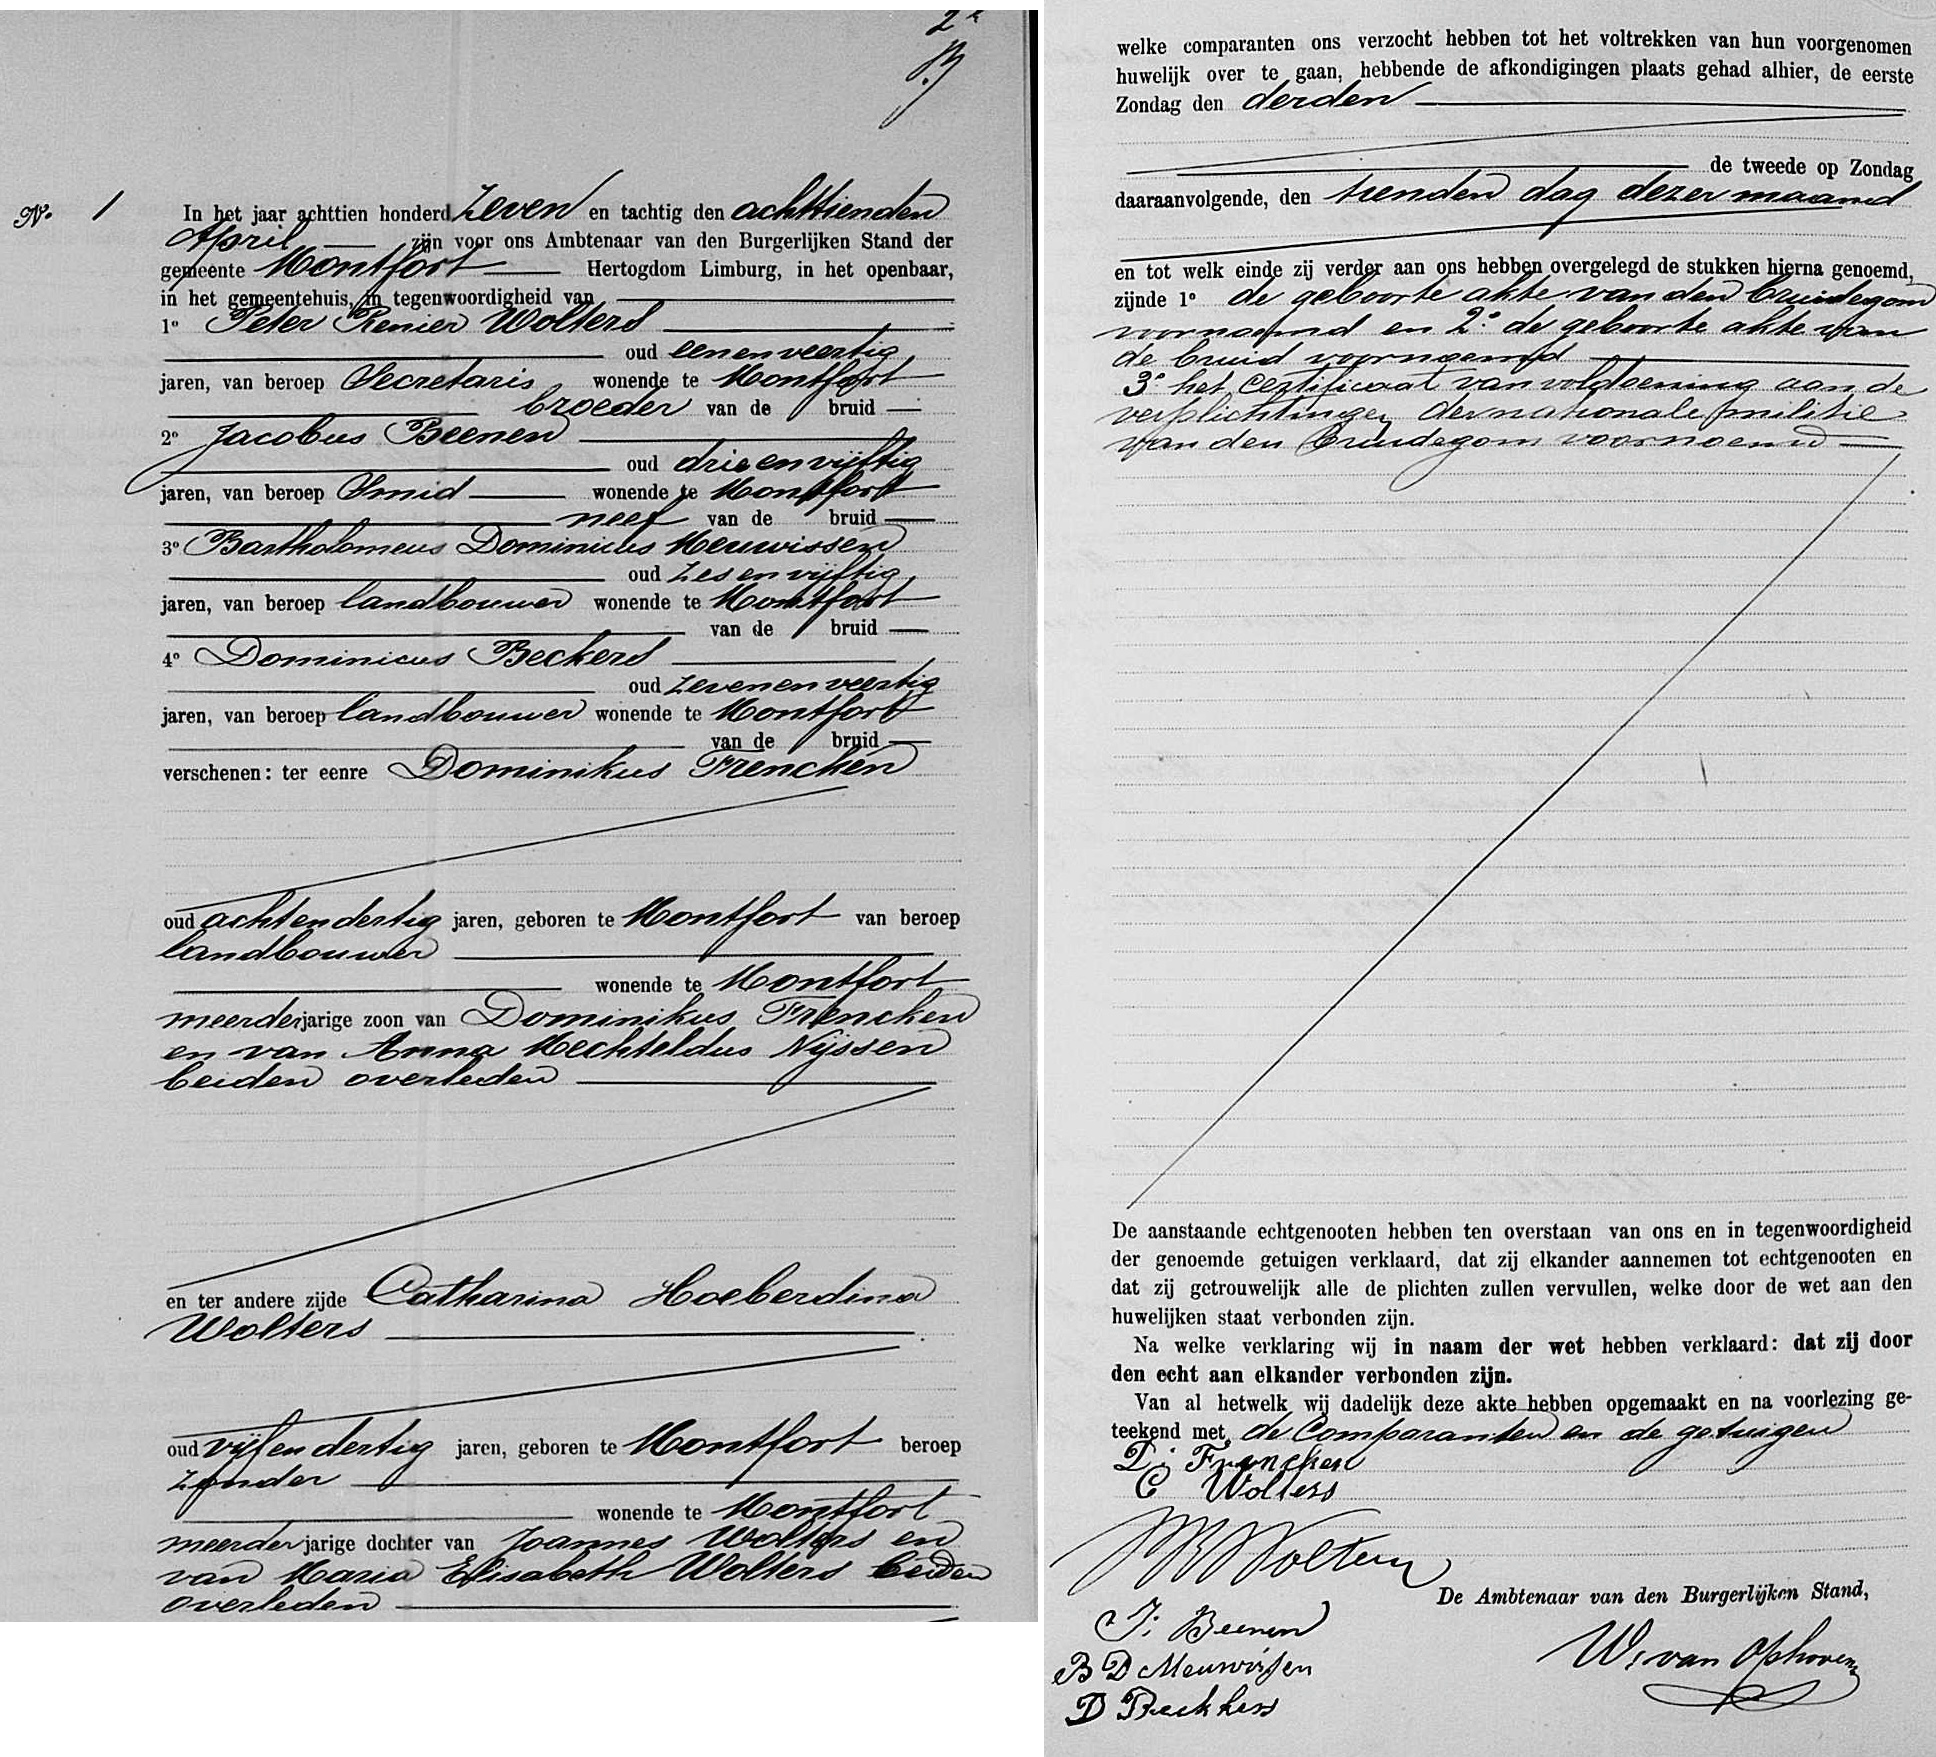 2e
N°. 1
In het jaar achttien honderd Zeven en tachtig den achttienden
April zijn voor ons Ambtenaar van den Burgerlijken Stand der
gemeente Montfort Hertogdom Limburg, in het openbaar,
in het gemeentehuis, in tegenwoordigheid van
1° Peter Renier Wolters
oud eenenveertig
jaren, van beroep Secretaris wonende te Montfort
broeder van de bruid
2° Jacobus Beenen
oud drieenvijftig
jaren, van beroep Smid wonende te Montfort
neef van de bruid
3° Bartholomeus Dominicus Meuwissen
oud zesenvijftig
jaren, van beroep landbouwer wonende te Montfort
van de bruid
4° Dominicus Beckers
oud zevenenveertig
jaren, van beroep landbouwer wonende te Montfort
van de bruid
verschenen: ter eenre Dominikus Frencken
oud achtendertig jaren, geboren te Montfort van beroep
landbouwer
wonende te Montfort
meerderjarige zoon van Dominikus Frencken
en van Anna Mechteldus Nijssen
beiden overleden
en ter andere zijde Catharina Hoeberdina
Wolters
oud vijfendertig jaren, geboren te Montfort beroep
zonder
wonende te Montfort
meerderjarige dochter van Joannes Wolters en
van Maria Elisabeth Wolters beiden
overleden
welke comparanten ons verzocht hebben tot het voltrekken van hun voorgenomen
huwelijk over te gaan, hebbende de afkondigingen plaats gehad alhier, de eerste
Zondag den derden
de tweede op Zondag
daaraanvolgende, den tienden dag dezer maand
en tot welk einde zij verder aan ons hebben overgelegd de stukken hierna genoemd,
zijnde 1° de geboorte akte van den bruidegom
voornoemd en 2° de geboorte akte van
de bruid voornoemd
3° het certificaat van voldoening aan de
verplichtingen der nationale militie
van den bruidegom voornoemd
De aanstaande echtgenooten hebben ten overstaan van ons en in tegenwoordigheid
der genoemde getuigen verklaard, dat zij elkander aannemen tot echtgenooten en
dat zij getrouwelijk alle de plichten zullen vervullen, welke door de wet aan den
huwelijken staat verbonden zijn.
Na welke verklaring wij in naam der wet hebben verklaard: dat zij door
den echt aan elkander verbonden zijn.
Van al hetwelk wij dadelijk deze akte hebben opgemaakt en na voorlezing ge-
teekend met de Comparanten en de getuigen
D. Frencken
C Wolters
PR Wolters
De Ambtenaar van den Burgerlijken Stand,
J. Beenen
W. van Ophoven
B D Meuwissen
D Beckkers